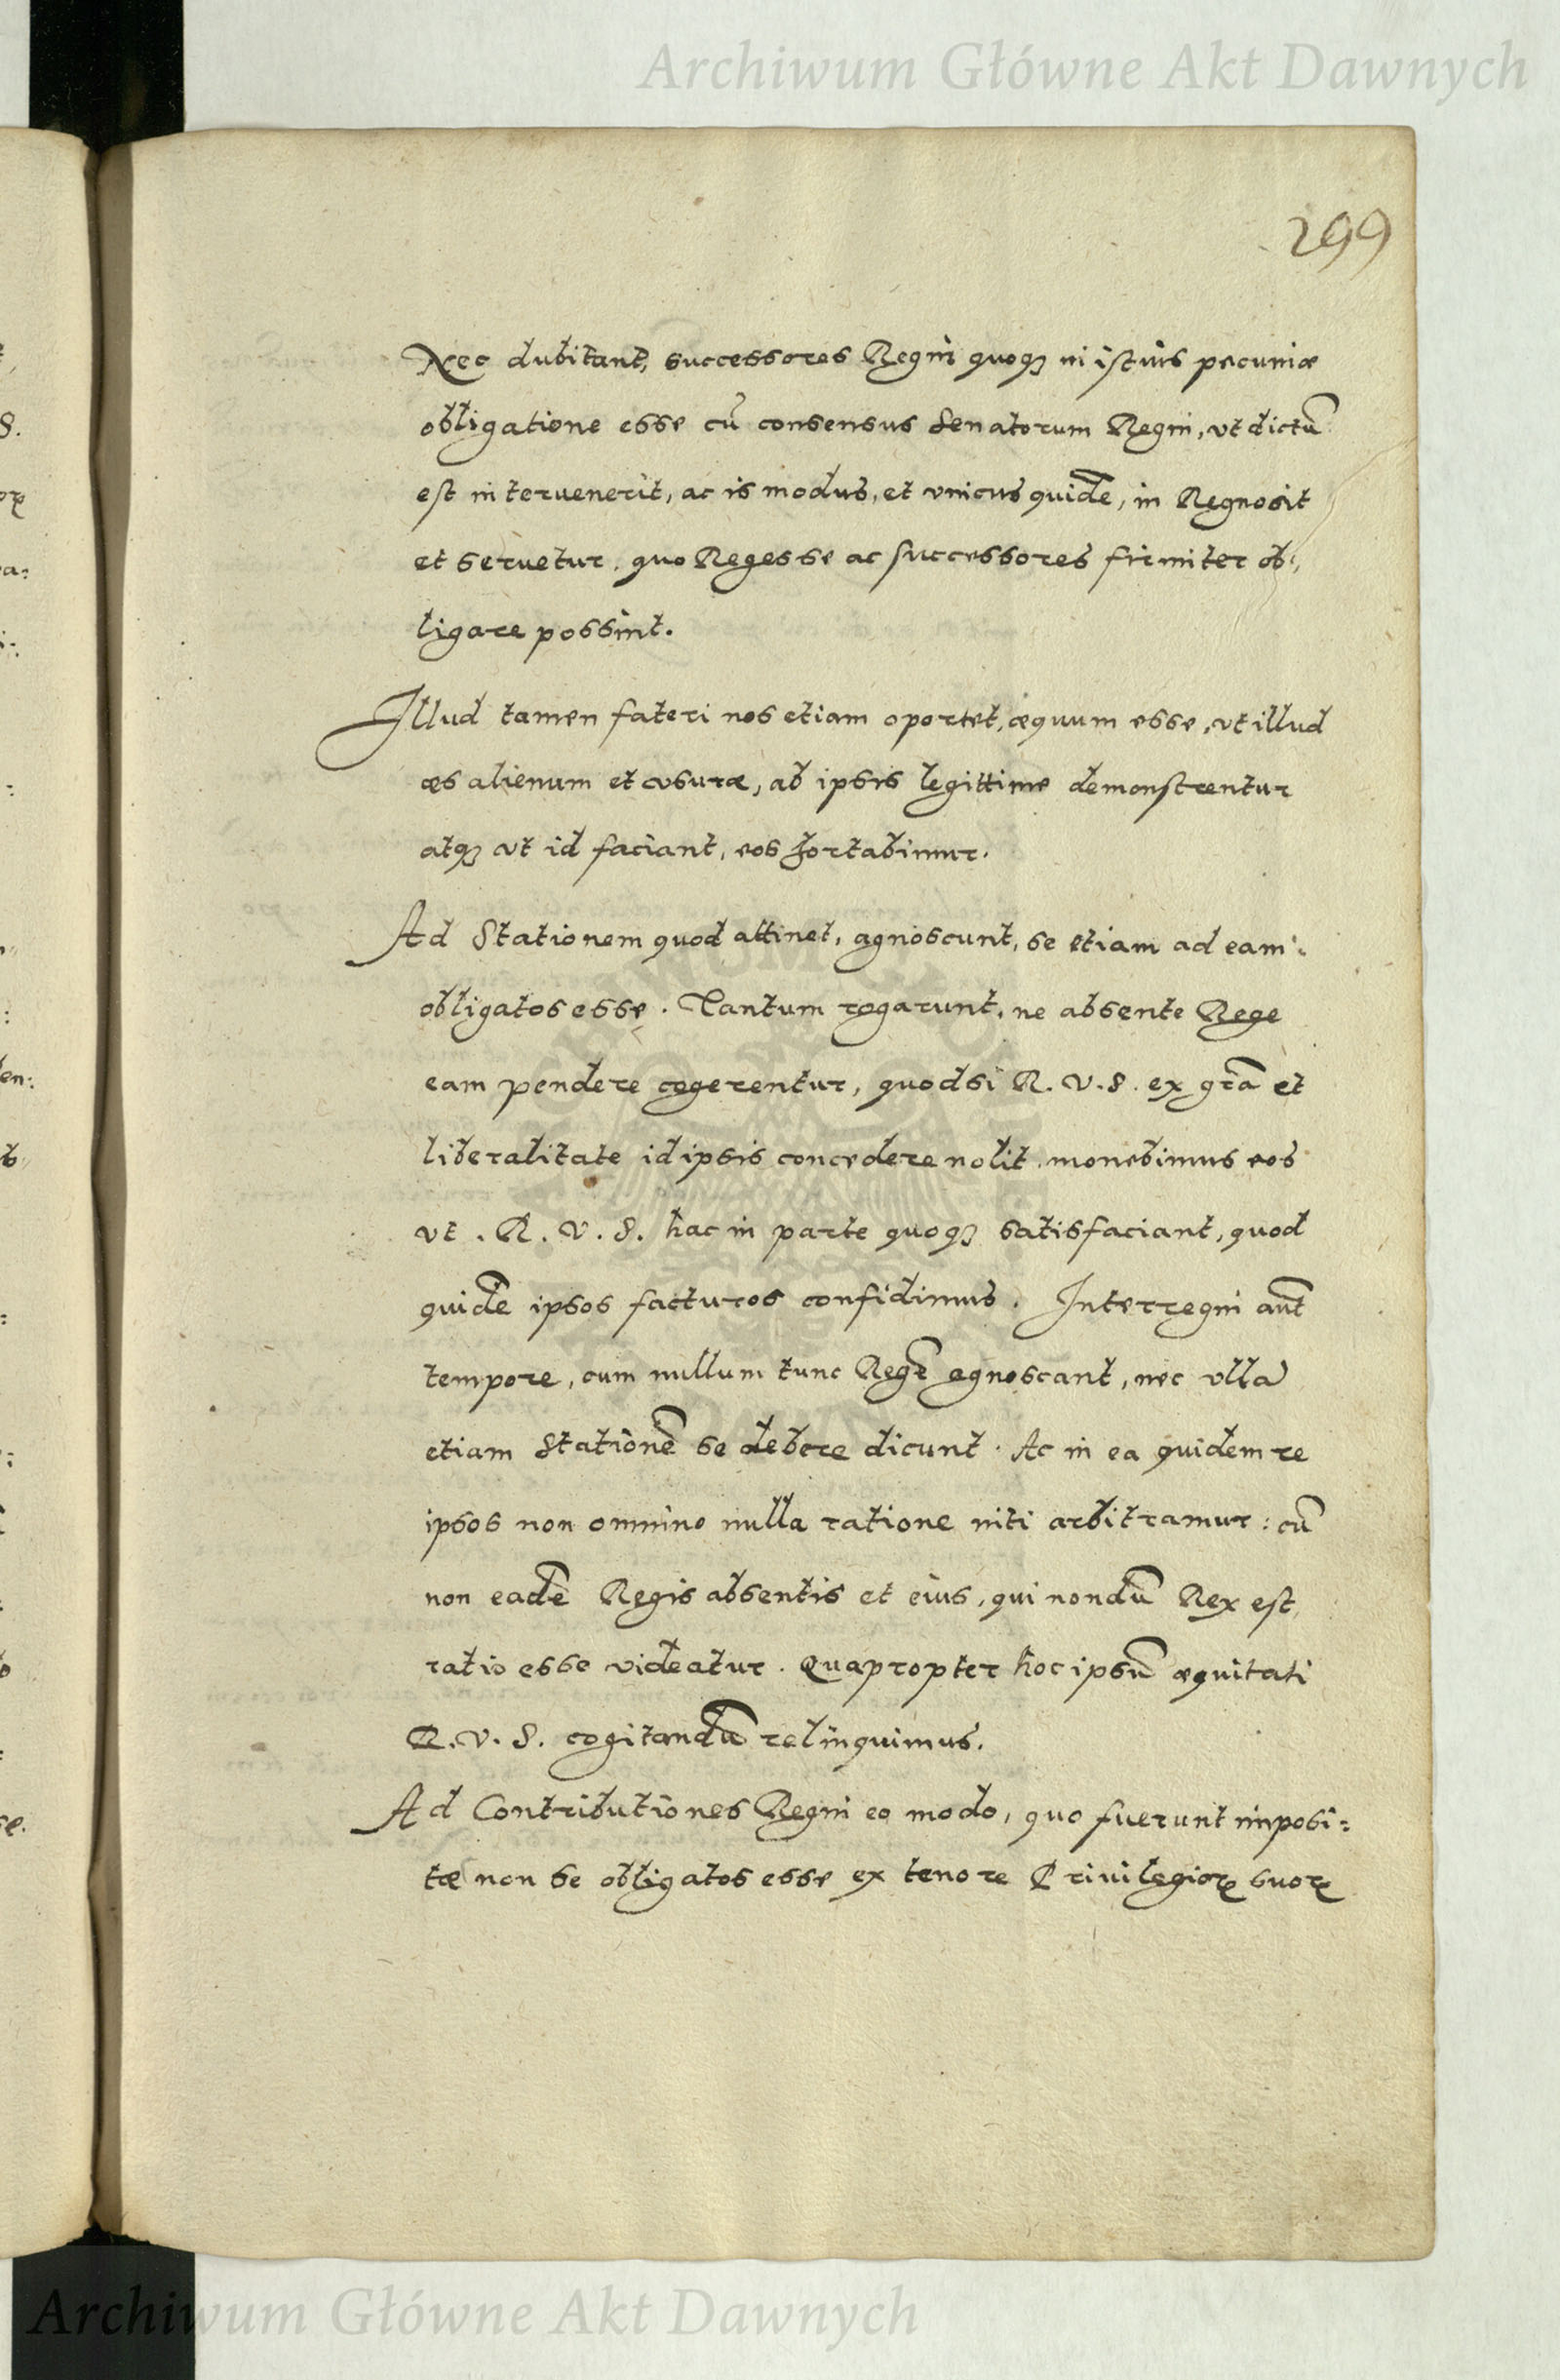 Archiwum Główne Akt Dawnych
299
Nec dubitant, successores Regni quoqꝫ in istius pecuniæ
obligatione esse cū consensus Senatorum Regni, vt dictū
est interuenerit, ac is modus, et vnicus quidē, in Regno sit
et seruetur, quo Reges se ac successores firmiter ob,
ligare possint.
Illud tamen fateri nos etiam oportet, æquum esse, vt illud
æs alienum et vsuræ, ab ipsis legittime demonstrentur
atqꝫ vt id faciant, eos hortabimur.
Ad Stationem quod attinet, agnoscunt, se etiam ad eam
obligatos esse. Tantum rogarunt, ne absente Rege
eam pendere cogerentur, quod si R. V. S. ex grā et
liberalitate id ipsis concedere nolit, monebimus eos
vt. R. V. S. hac in parte quoqꝫ satisfaciant, quod
quidē ipsos facturos confidimus. Interregni aūt
tempore, cum nullum tunc Regē agnoscant, nec vlla
etiam Stationē se debere dicunt. Ac in ea quidem re
ipsos non omnino nulla ratione niti arbitramur: cū
non eadē Regis absentis et eius, qui nondū Rex est,
ratio esse videatur. Quapropter hoc ipsū æquitati
R. V. S. cogitandū relinquimus.
Ad Contributiones Regni eo modo, quo fuerunt imposi=
tæ non se obligatos esse ex tenore Priuilegioꝝ suoꝝ
Archiwum Główne Akt Dawnych